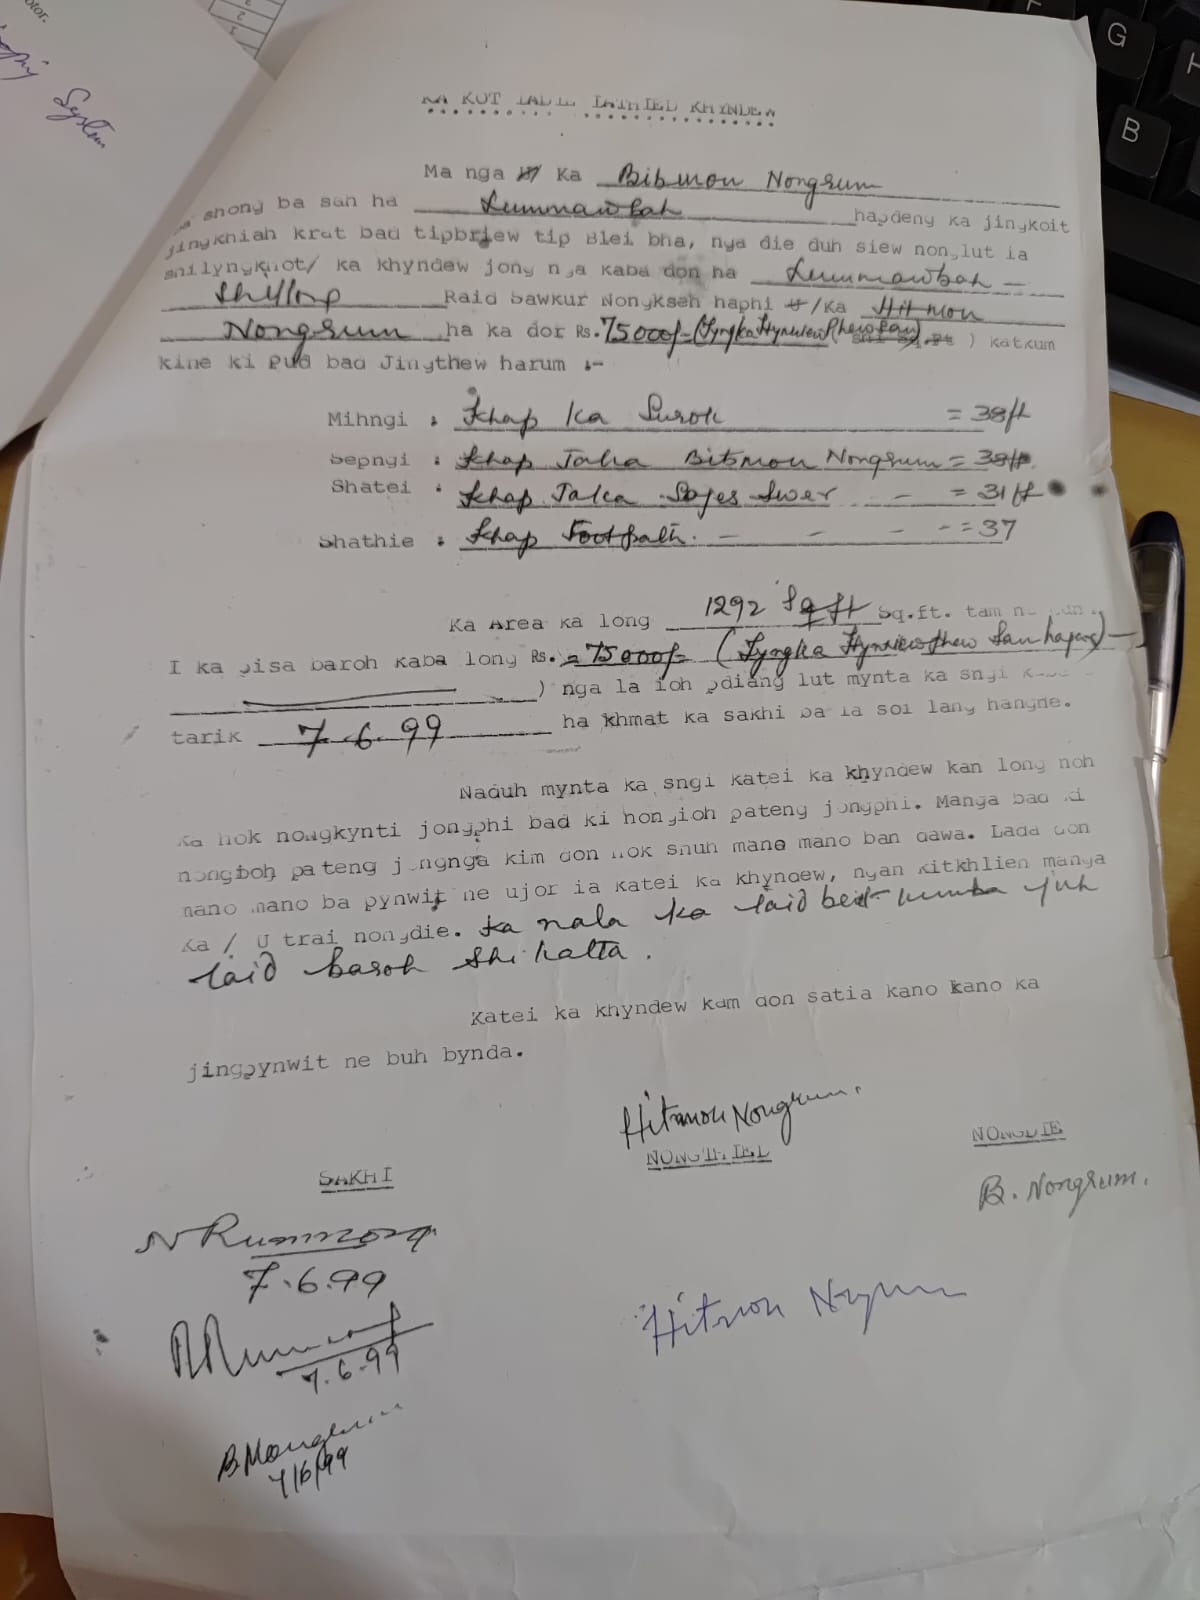 otor.
System
KA KOT IADIE IATHIED KHYNDEW
Ma nga Ka Bibmon Nongrum
shong ba sah ha Lummawbah hapdeng ka jingkoit
jingkhiah krat bad tipbriew tip Blei bha, nga die duh siew nonglut ia
shilyngknot/ ka khyndew jong nga kaba don ha Lummawbah -
Shillong Raid Lawkur Nongkseh haphi /Ka Hitmon
Nongrum ha ka dor Rs. 75000/- (Tyngka Hynniewphewsan ) katkum
kine ki pud bad Jingthew harum :-
Mihngi : Khap ka Surok = 38ft
Sepngi : Khap Jaka Bitmon Nongrum = 38ft.
Shatei : Khap Jaka Swer - = 31ft
Shathie : Khap Footpath. - - - - = 37
Ka Area ka long 1292 Sq ft Sq.ft. tam ne dun.
I ka pisa baroh kaba long Rs. = 75000/- (Tyngka Hynniewphew san hajar) -
) nga la ioh pdiang lut mynta ka sngi
tarik 7.6.99 ha khmat ka sakhi ba la soi lang hangne.
Naduh mynta ka sngi katei ka khyndew kan long noh
ka hok nongkynti jongphi bad ki nongioh pateng jongphi. Manga bad ki
nongioh pateng jongnga kim don hok shuh mano mano ban dawa. Lada don
mano mano ba pynwit ne ujor ia katei ka khyndew, ngan kitkhlieh manga
Ka / U trai nongdie. Ka nala ka laid beit kumba juh
laid baroh shi katta.
Katei ka khyndew kam don satia kano kano ka
jingpynwit ne buh bynda.
Hitmon Nongrum.
NONGTHIED
NONGDIE
B. Nongrum.
SAKHI
7.6.99
7.6.99
7/6/99
Hitmon